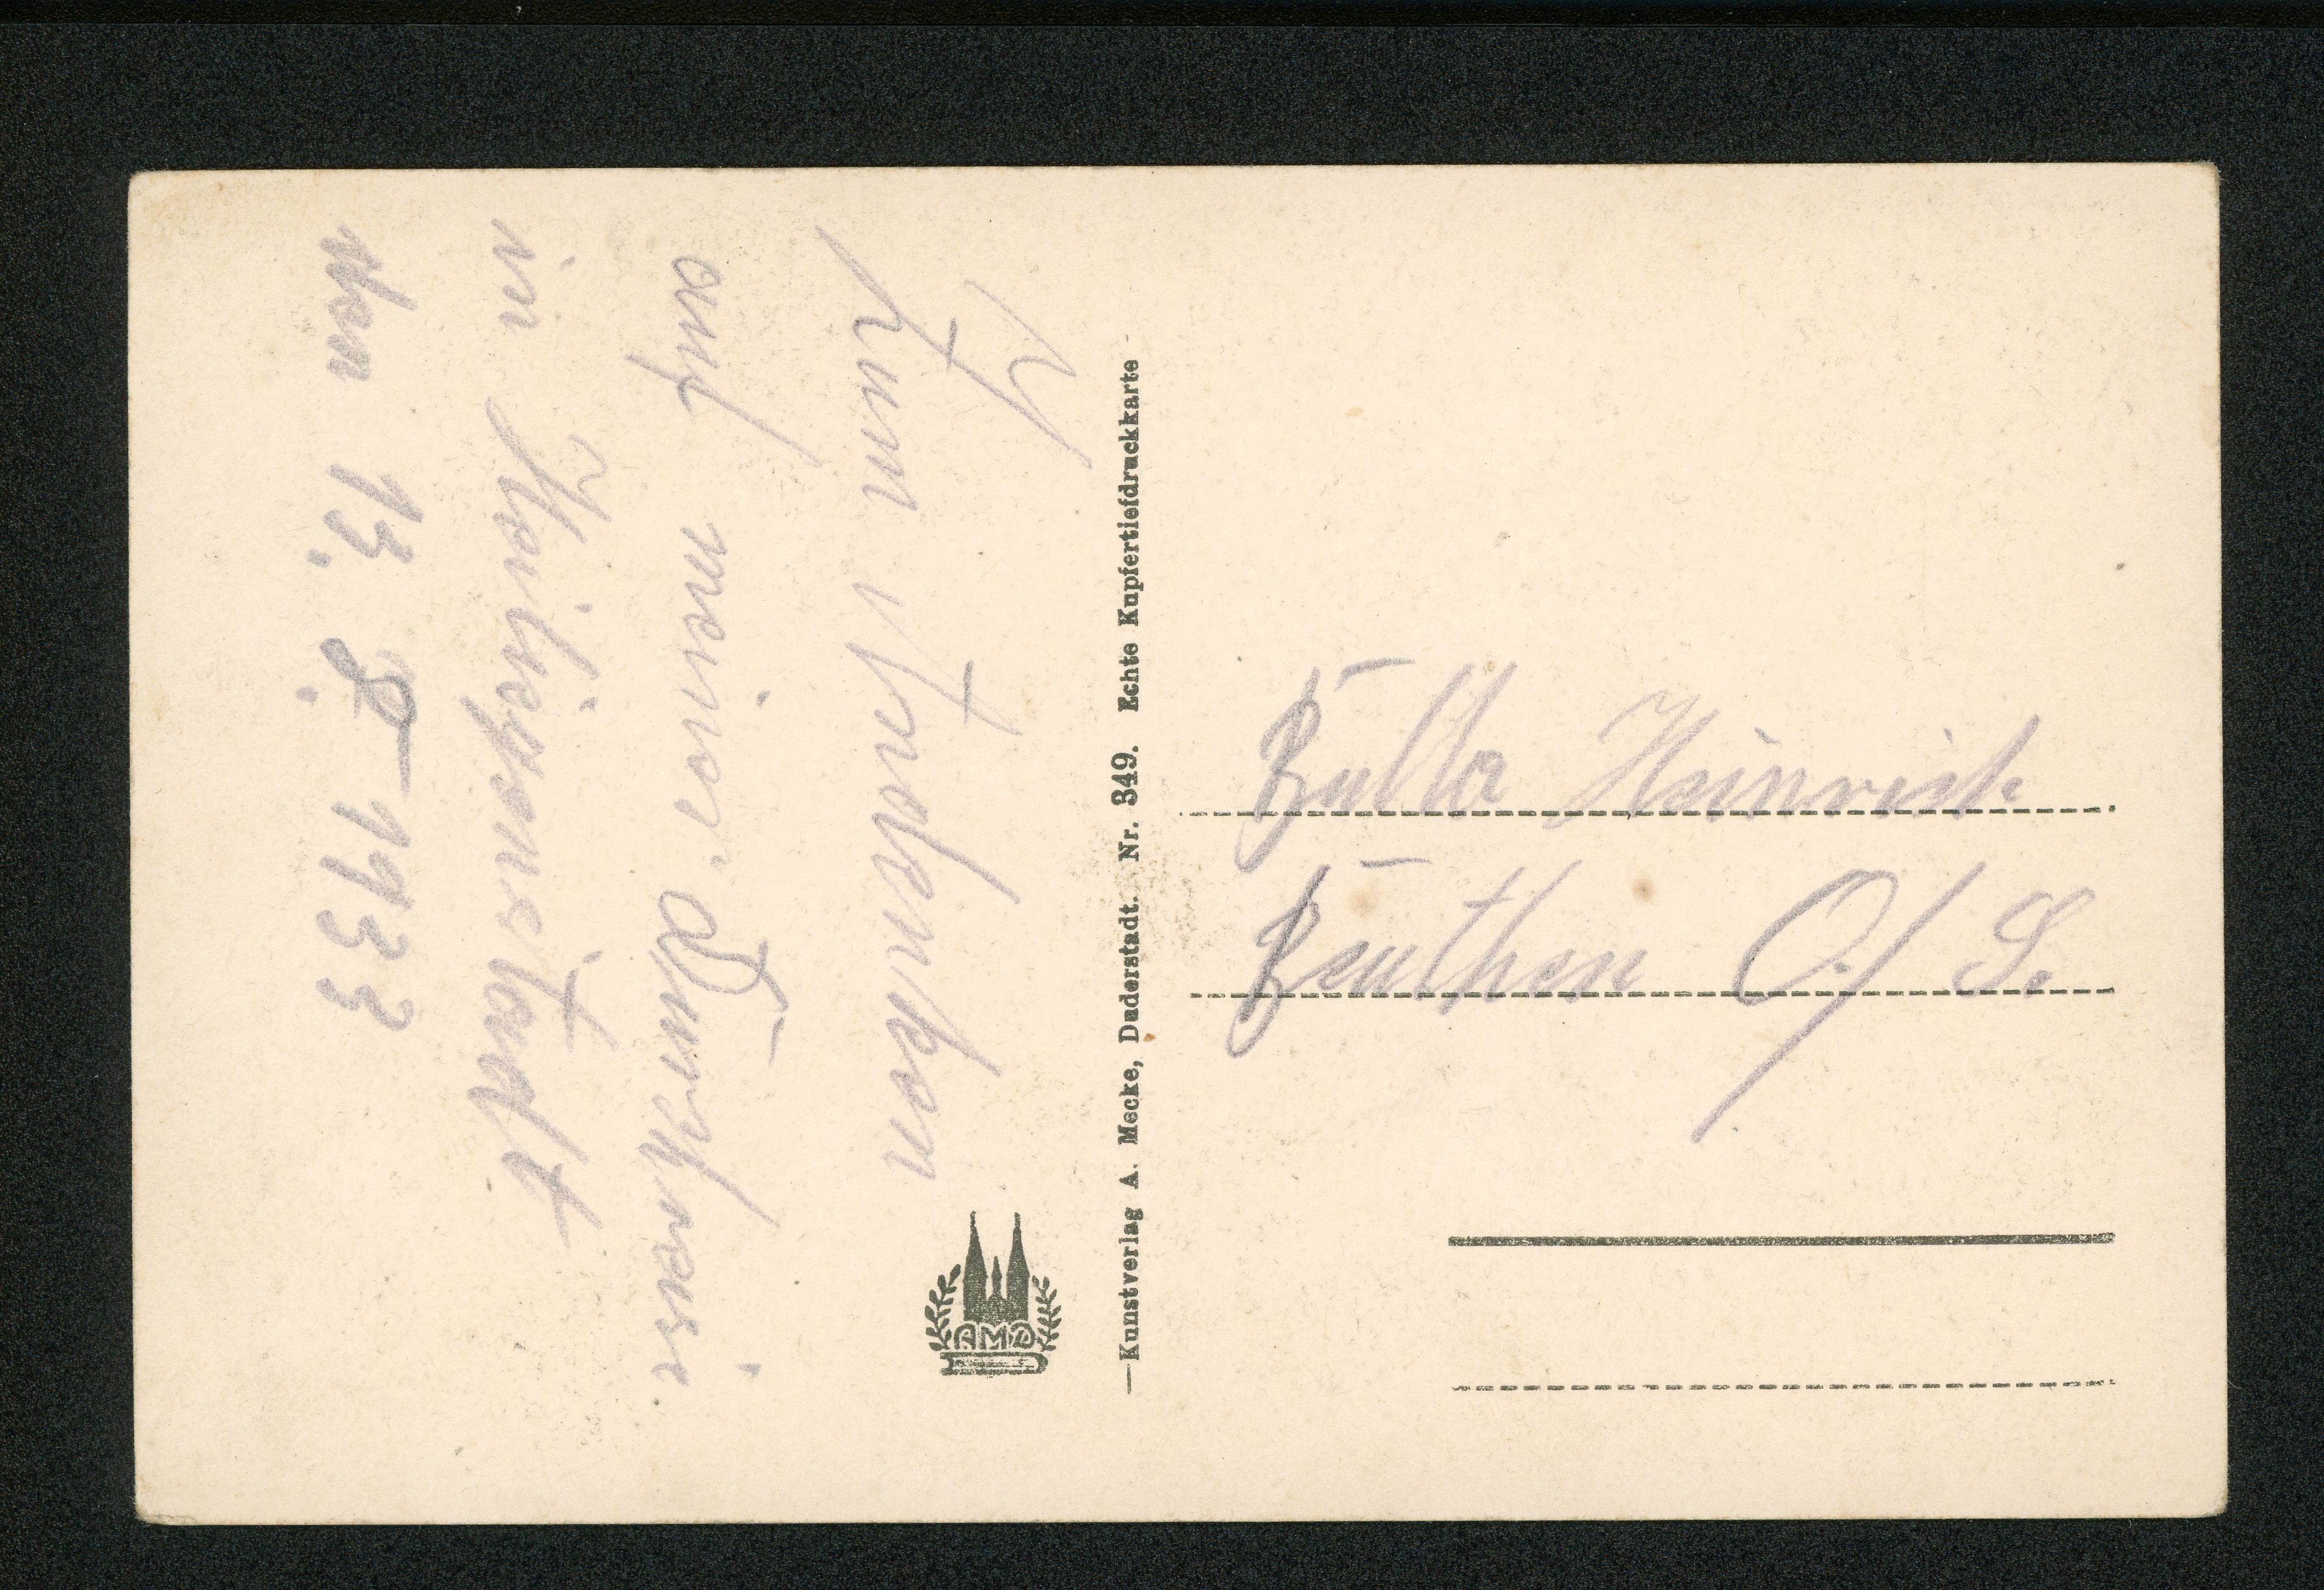 Zum Andenken
auf meiner Durchreise.
in Heiligenstadt
den 13. 8. 1933
AMD
Kunstverlag A. Mecke, Duderstadt. Nr. 349. Echte Kupfertiefdruckkarte
Bulla Heinrich
Beuthen O./S.